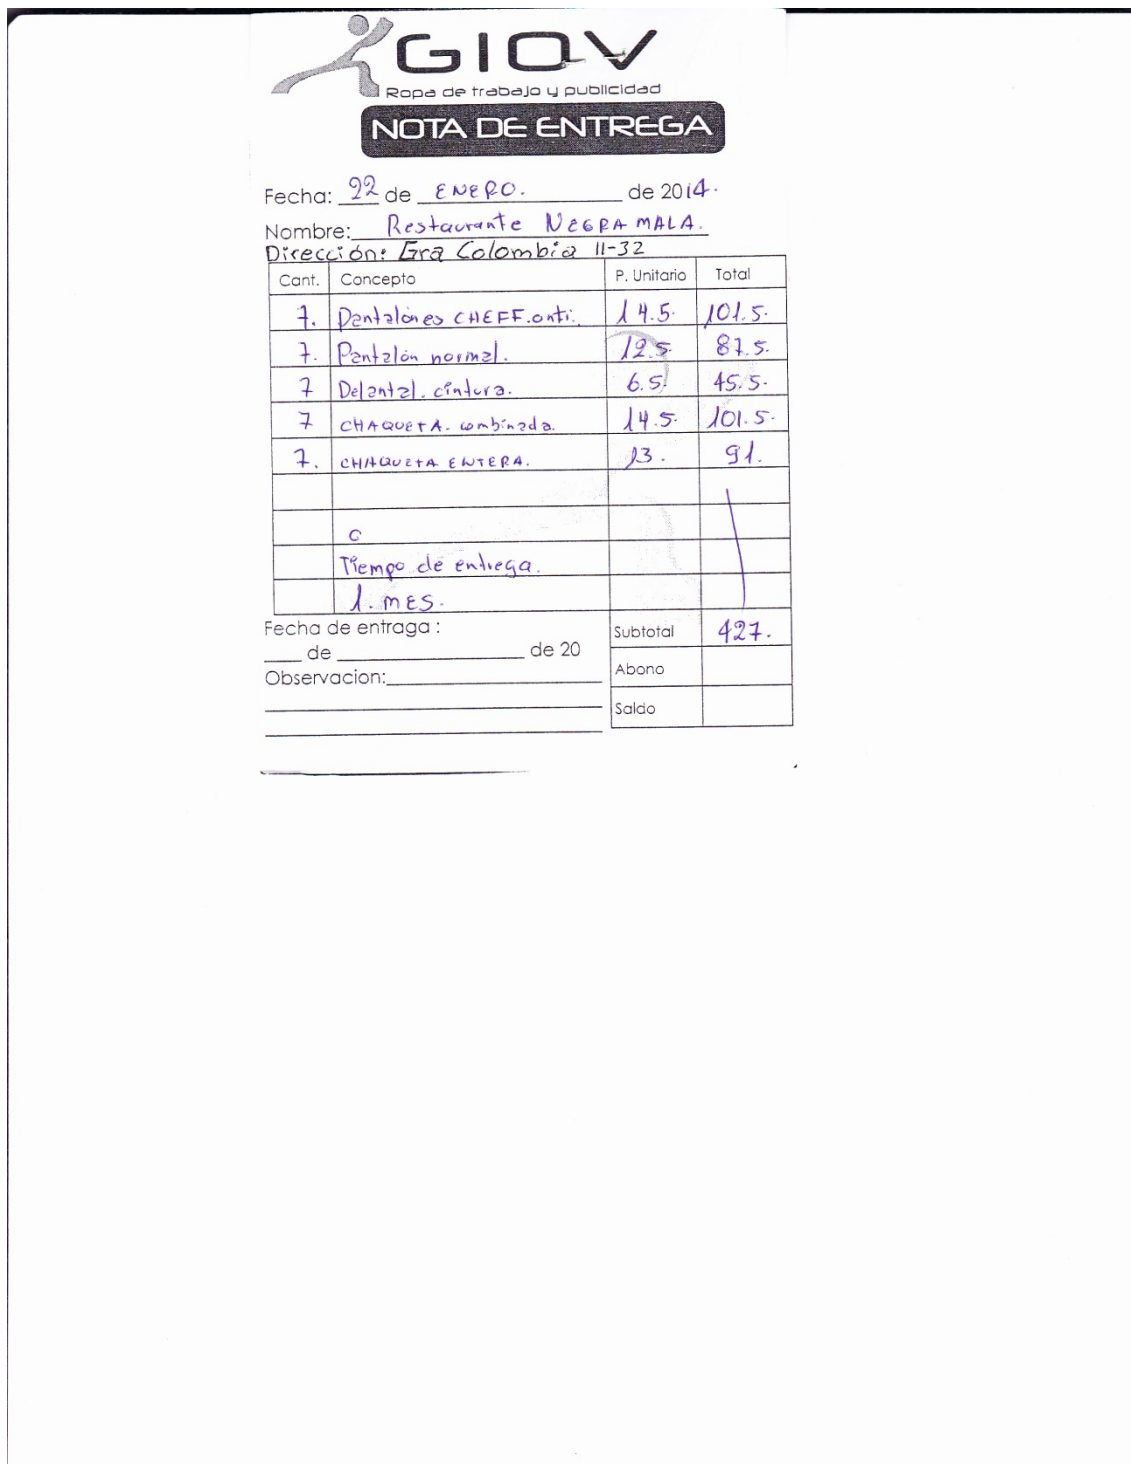 GIOV
Ropa de trabajo y publicidad
NOTA DE ENTREGA
Fecha: 22 de ENERO. de 2014.
Nombre: Restaurante NEGRA MALA.
Dirección: Gra Colombia 11-32
Cant. Concepto P. Unitario Total
7. Pantalones CHEFF. anti. 14.5. 101.5.
7. Pantalón normal. 12.5. 87.5.
7 Delantal. cintura. 6.5. 45.5.
7 CHAQUETA. combinada. 14.5. 101.5.
7. CHAQUETA ENTERA. 13. 91.
Tiempo de entrega.
1. MES.
Fecha de entraga :
Subtotal 427.
de de 20
Abono
Observacion:
Saldo